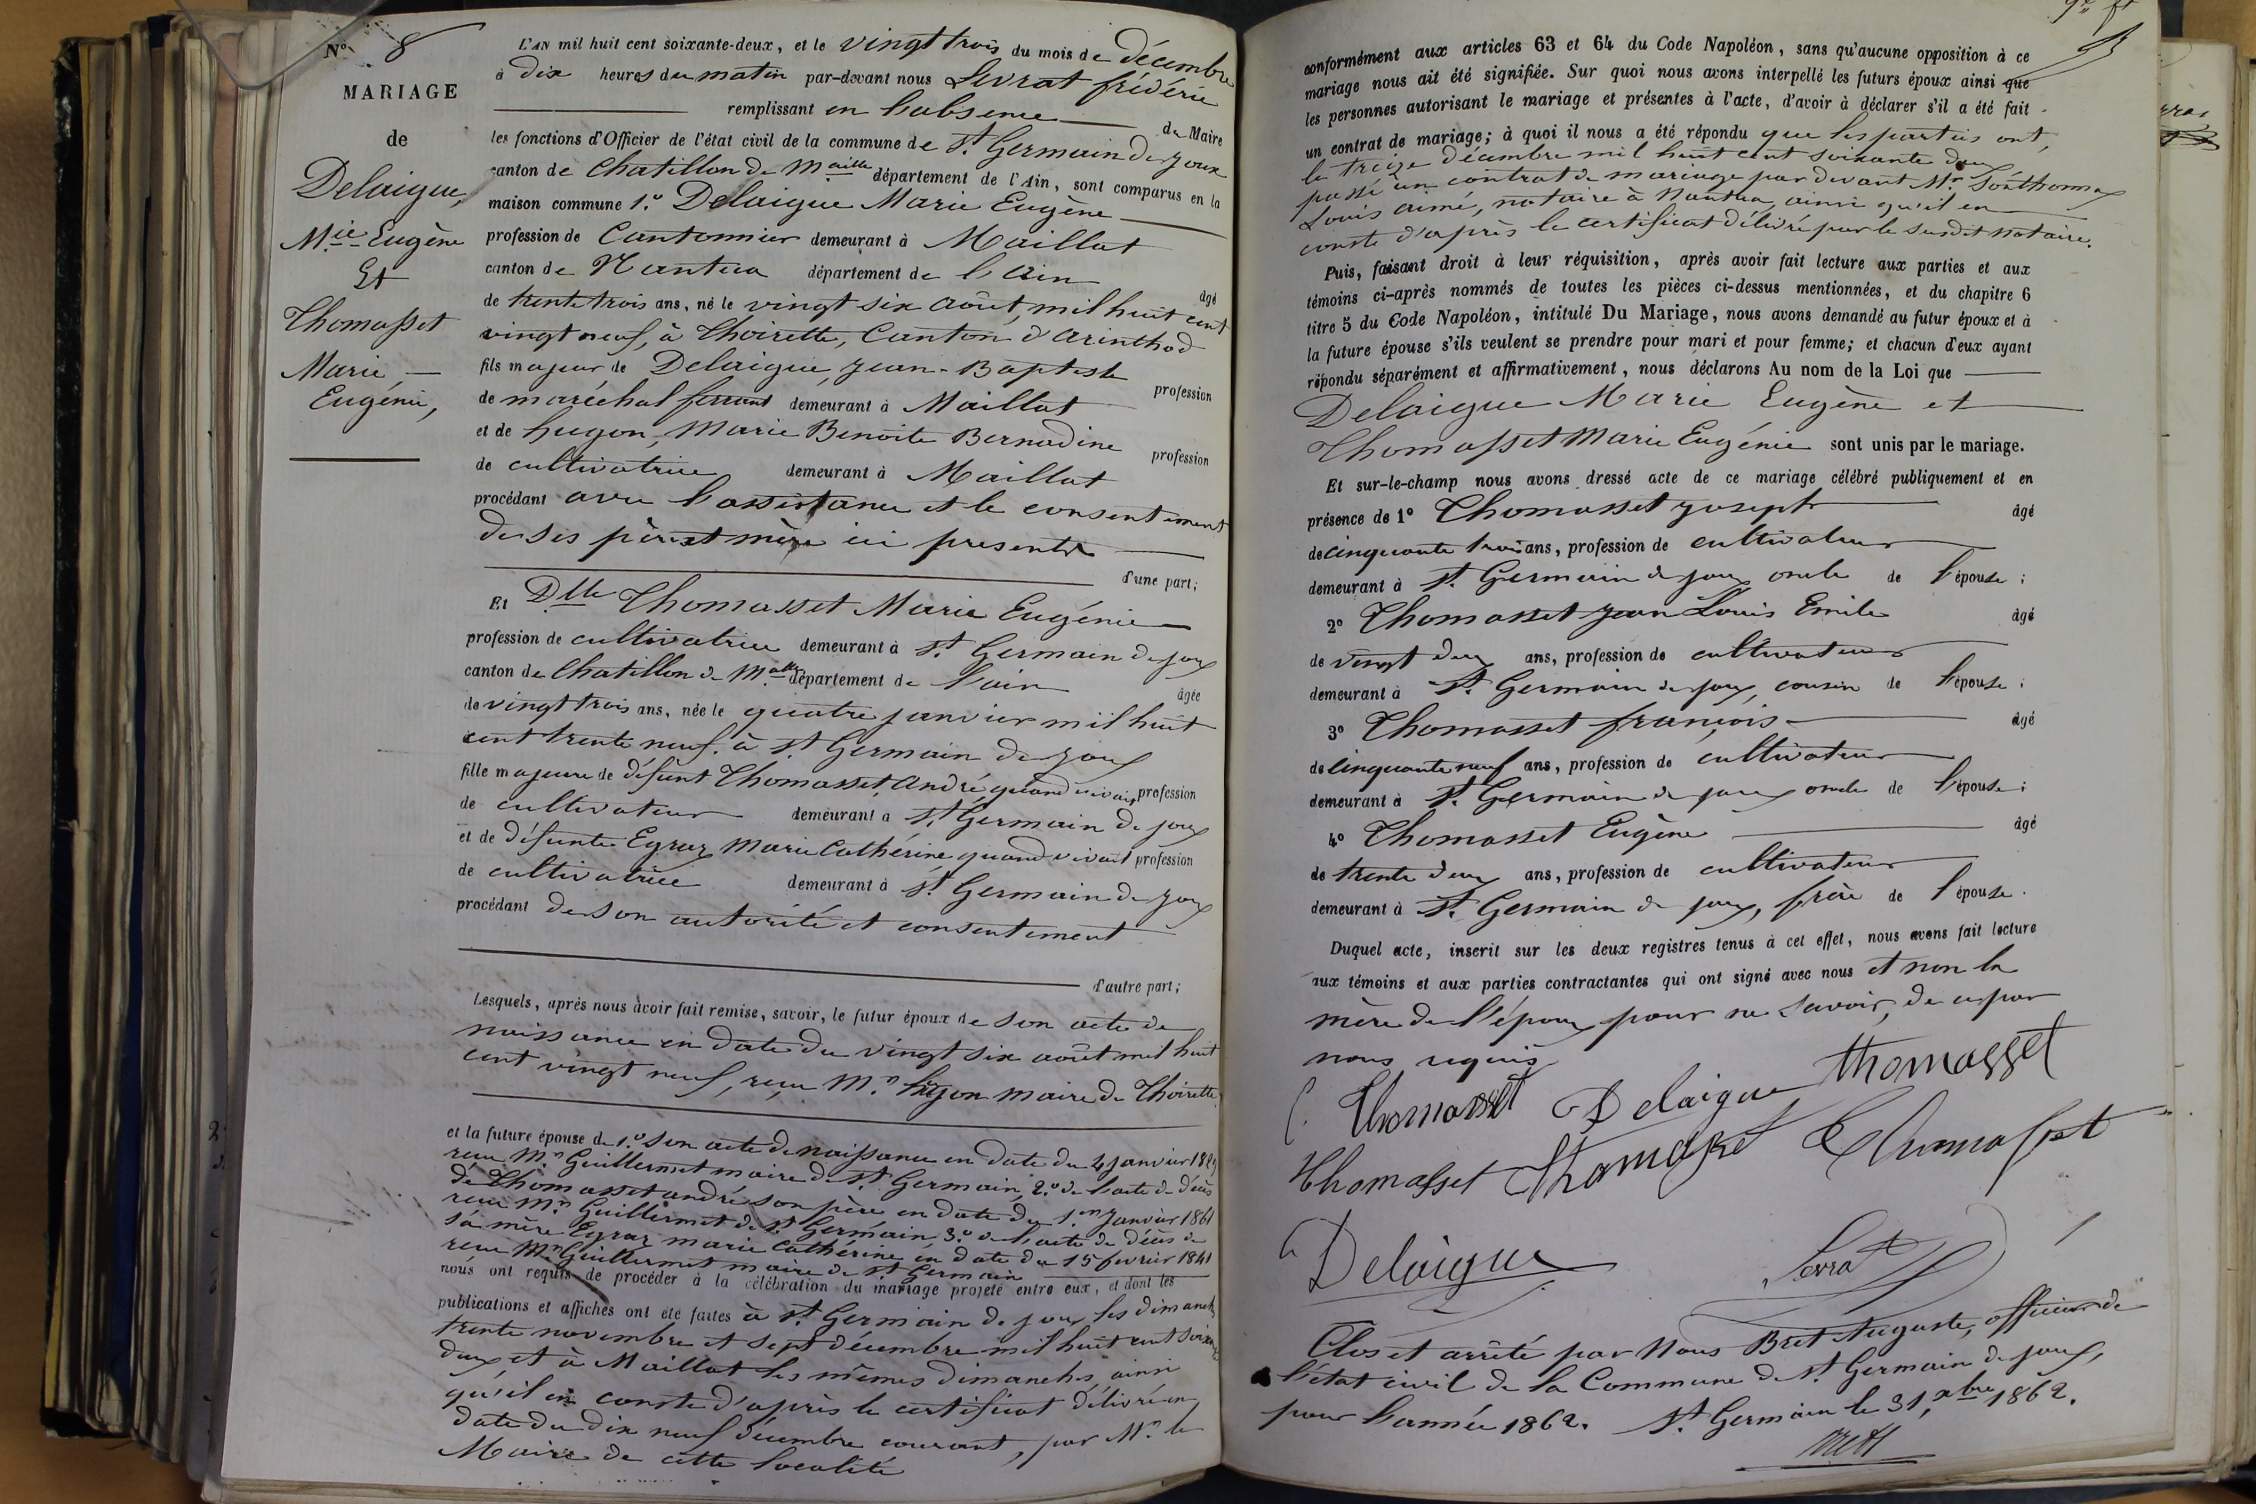 N° 8
MARIAGE
de
Delaigue,
M.ie Eugène
Et
Thomasset
Marie
Eugénie,
L'AN mil huit cent soixante-deux, et le vingt trois du mois de décembre
à dix heures du matin par-devant nous Levrat frédéric
remplissant en l'absence du Maire
les fonctions d'Officier de l'état civil de la commune de St. Germain de Joux
canton de Chatillon de M.aille département de l'Ain, sont comparus en la
maison commune 1.° Delaigue Marie Eugène
profession de Cantonnier demeurant à Maillat
canton de Nantua département de l'Ain
âgé
de trente trois ans, né le vingt six août, mil huit cent
vingt neuf, à Thoirette, Canton d'Arinthod
fils majeur de Delaigue, Jean-Baptiste
profession
de maréchal ferrant demeurant à Maillat
et de hugon, Marie Benoite Bernadine
profession
de cultivatrice demeurant à Maillat
procédant avec l'assistance et le consentement
de ses père et mère ici présents
d'une part;
Et Dlle Thomasset Marie Eugénie
profession de cultivatrice demeurant à St. Germain de Joux
canton de Chatillon de M.alle département de l'ain
âgée
de vingt trois ans, née le quatre janvier mil huit
cent trente neuf, à St Germain de Joux
fille majeure de défunt Thomasset, André, quand vivait profession
de cultivateur demeurant à St. Germain de joux
et de défunte Egraz Marie Cathérine quand vivait profession
de cultivatrice demeurant à St. Germain de Joux
procédant de son autorité et consentement
d'autre part;
Lesquels, après nous avoir fait remise, savoir, le futur époux de son acte de
naissance en date du vingt six août mil huit
cent vingt neuf, reçu M.r hugon maire de Thoirette,
et la future épouse de 1.° son acte de naissance en date du 4 janvier 1839
reçu M.r Guillermet maire de St. Germain, 2.° de l'acte de décès
de Thomasset andré son père en date du 1.er Janvier 1861
reçu M.r Guillermet de St. Germain 3.° de l'acte de décès de
sa mère Egraz marie Cathérine en date du 15 fevrier 1841
reçu Mr. Guillermet maire de St. Germain
nous ont requis de procéder à la célébration du mariage projeté entre eux, et dont les
publications et affiches ont été faites à St. Germain de joux les dimanches
trente novembre et sept décembre mil huit cent soixante
deux, et à Maillat les mêmes dimanches, ainsi
qu'il en conste d'après le certificat délivré en
date du dix neuf décembre courant, par Mr. le
Maire de cette localité
conformément aux articles 63 et 64 du Code Napoléon, sans qu'aucune opposition à ce
mariage nous ait été signifiée. Sur quoi nous avons interpellé les futurs époux ainsi que
les personnes autorisant le mariage et présentes à l'acte, d'avoir à déclarer s'il a été fait
un contrat de mariage; à quoi il nous a été répondu que les parties ont,
le treize décembre mil huit cent soixante deux
passé un contrat de mariage par devant Mr. Sonthonnax
Louis aimé, notaire à Nantua, ainsi qu'il en
conste d'après le certificat délivré par le susdit notaire.
Puis, faisant droit à leur réquisition, après avoir fait lecture aux parties et aux
témoins ci-après nommés de toutes les pièces ci-dessus mentionnées, et du chapitre 6
titre 5 du Code Napoléon, intitulé Du Mariage, nous avons demandé au futur époux et à
la future épouse s'ils veulent se prendre pour mari et pour femme; et chacun d'eux ayant
répondu séparément et affirmativement, nous déclarons Au nom de la Loi que
Delaigue Marie Eugène et
Thomasset Marie Eugénie sont unis par le mariage.
Et sur-le-champ nous avons dressé acte de ce mariage célébré publiquement et en
présence de 1° Thomasset joseph âgé
de cinquante trois ans, profession de cultivateur
demeurant à St. Germain de joux oncle de l'épouse;
2° Thomasset Jean Louis Emile âgé
de vingt deux ans, profession de cultivateur
demeurant à St. Germain de joux, cousin de l'épouse;
3° Thomasset françois âgé
de cinquante neuf ans, profession de cultivateur
demeurant à St. Germain de joux oncle de l'épouse;
4° Thomasset Eugène âgé
de trente deux ans, profession de cultivateur
demeurant à St. Germain de joux, frère de l'épouse.
Duquel acte, inscrit sur les deux registres tenus à cet effet, nous avons fait lecture
aux témoins et aux parties contractantes qui ont signé avec nous et non la
mère de l'époux pour ne savoir, de ce par
nous requis
Thomasset Delaigue thomasset
Thomasset Thomasset E Thomasset
Delaigue Levrat
Clos et arrêté par Nous Bret Auguste, officier de
l'état civil de la Commune de St Germain de joux,
pour l'année 1862. St. Germain le 31 xbre 1862.
Bret